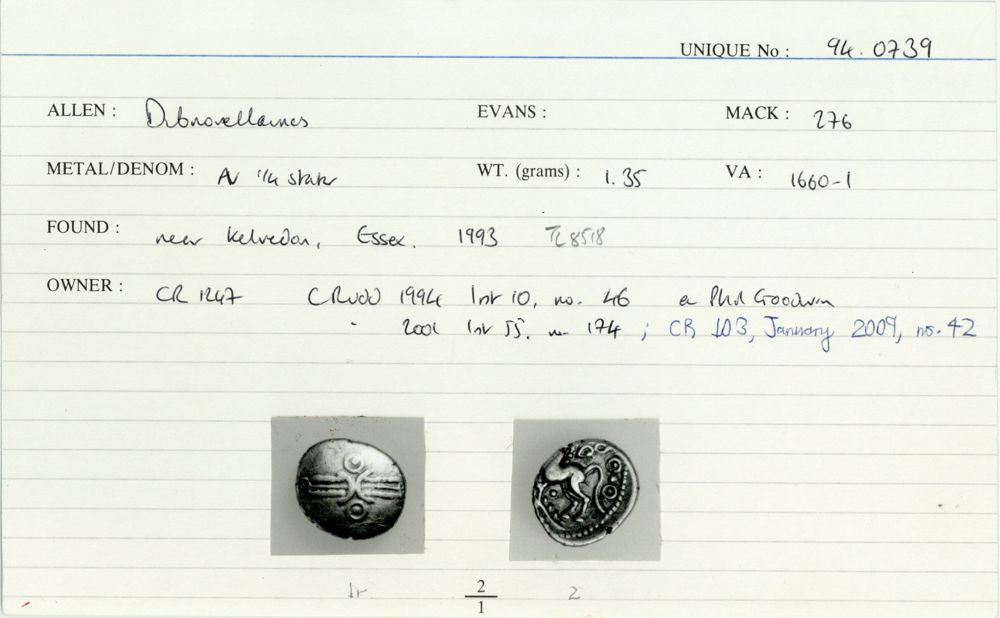 UNIQUE No : 94.0739
ALLEN : Dubnovellaunos EVANS : MACK : 276
METAL/DENOM : AV 1/4 stater WT. (grams) : 1.35 VA : 1660-1
FOUND : near Kelvedon, Essex. 1993 TL 8518
OWNER : CR 1247 CRUDD 1994 list 10, no. 46 Phil Goodwin
" 2001 list 55, no 174 ; CR 103, January 2009, no. 42
1r 2/1 2